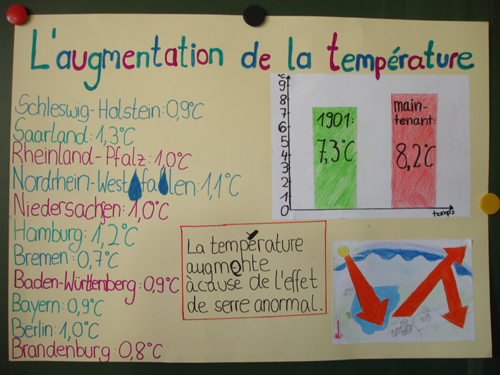 L'augmentation de la température
Schleswig-Holstein: 0,9°C
Saarland: 1,3°C
Rheinland-Pfalz: 1,0°C
Nordrhein-Westfallen: 1,1°C
Niedersachsen: 1,0°C
Hamburg: 1,2°C
Bremen: 0,7°C
Baden-Württenberg: 0,9°C
Bayern: 0,9°C
Berlin: 1,0°C
Brandenburg: 0,8°C
°C
9
8
7
6
5
4
3
2
1
0
1901:
7,3°C
main-
tenant:
8,2°C
temps
La température
augmente
à cause de l'effet
de serre anormal.